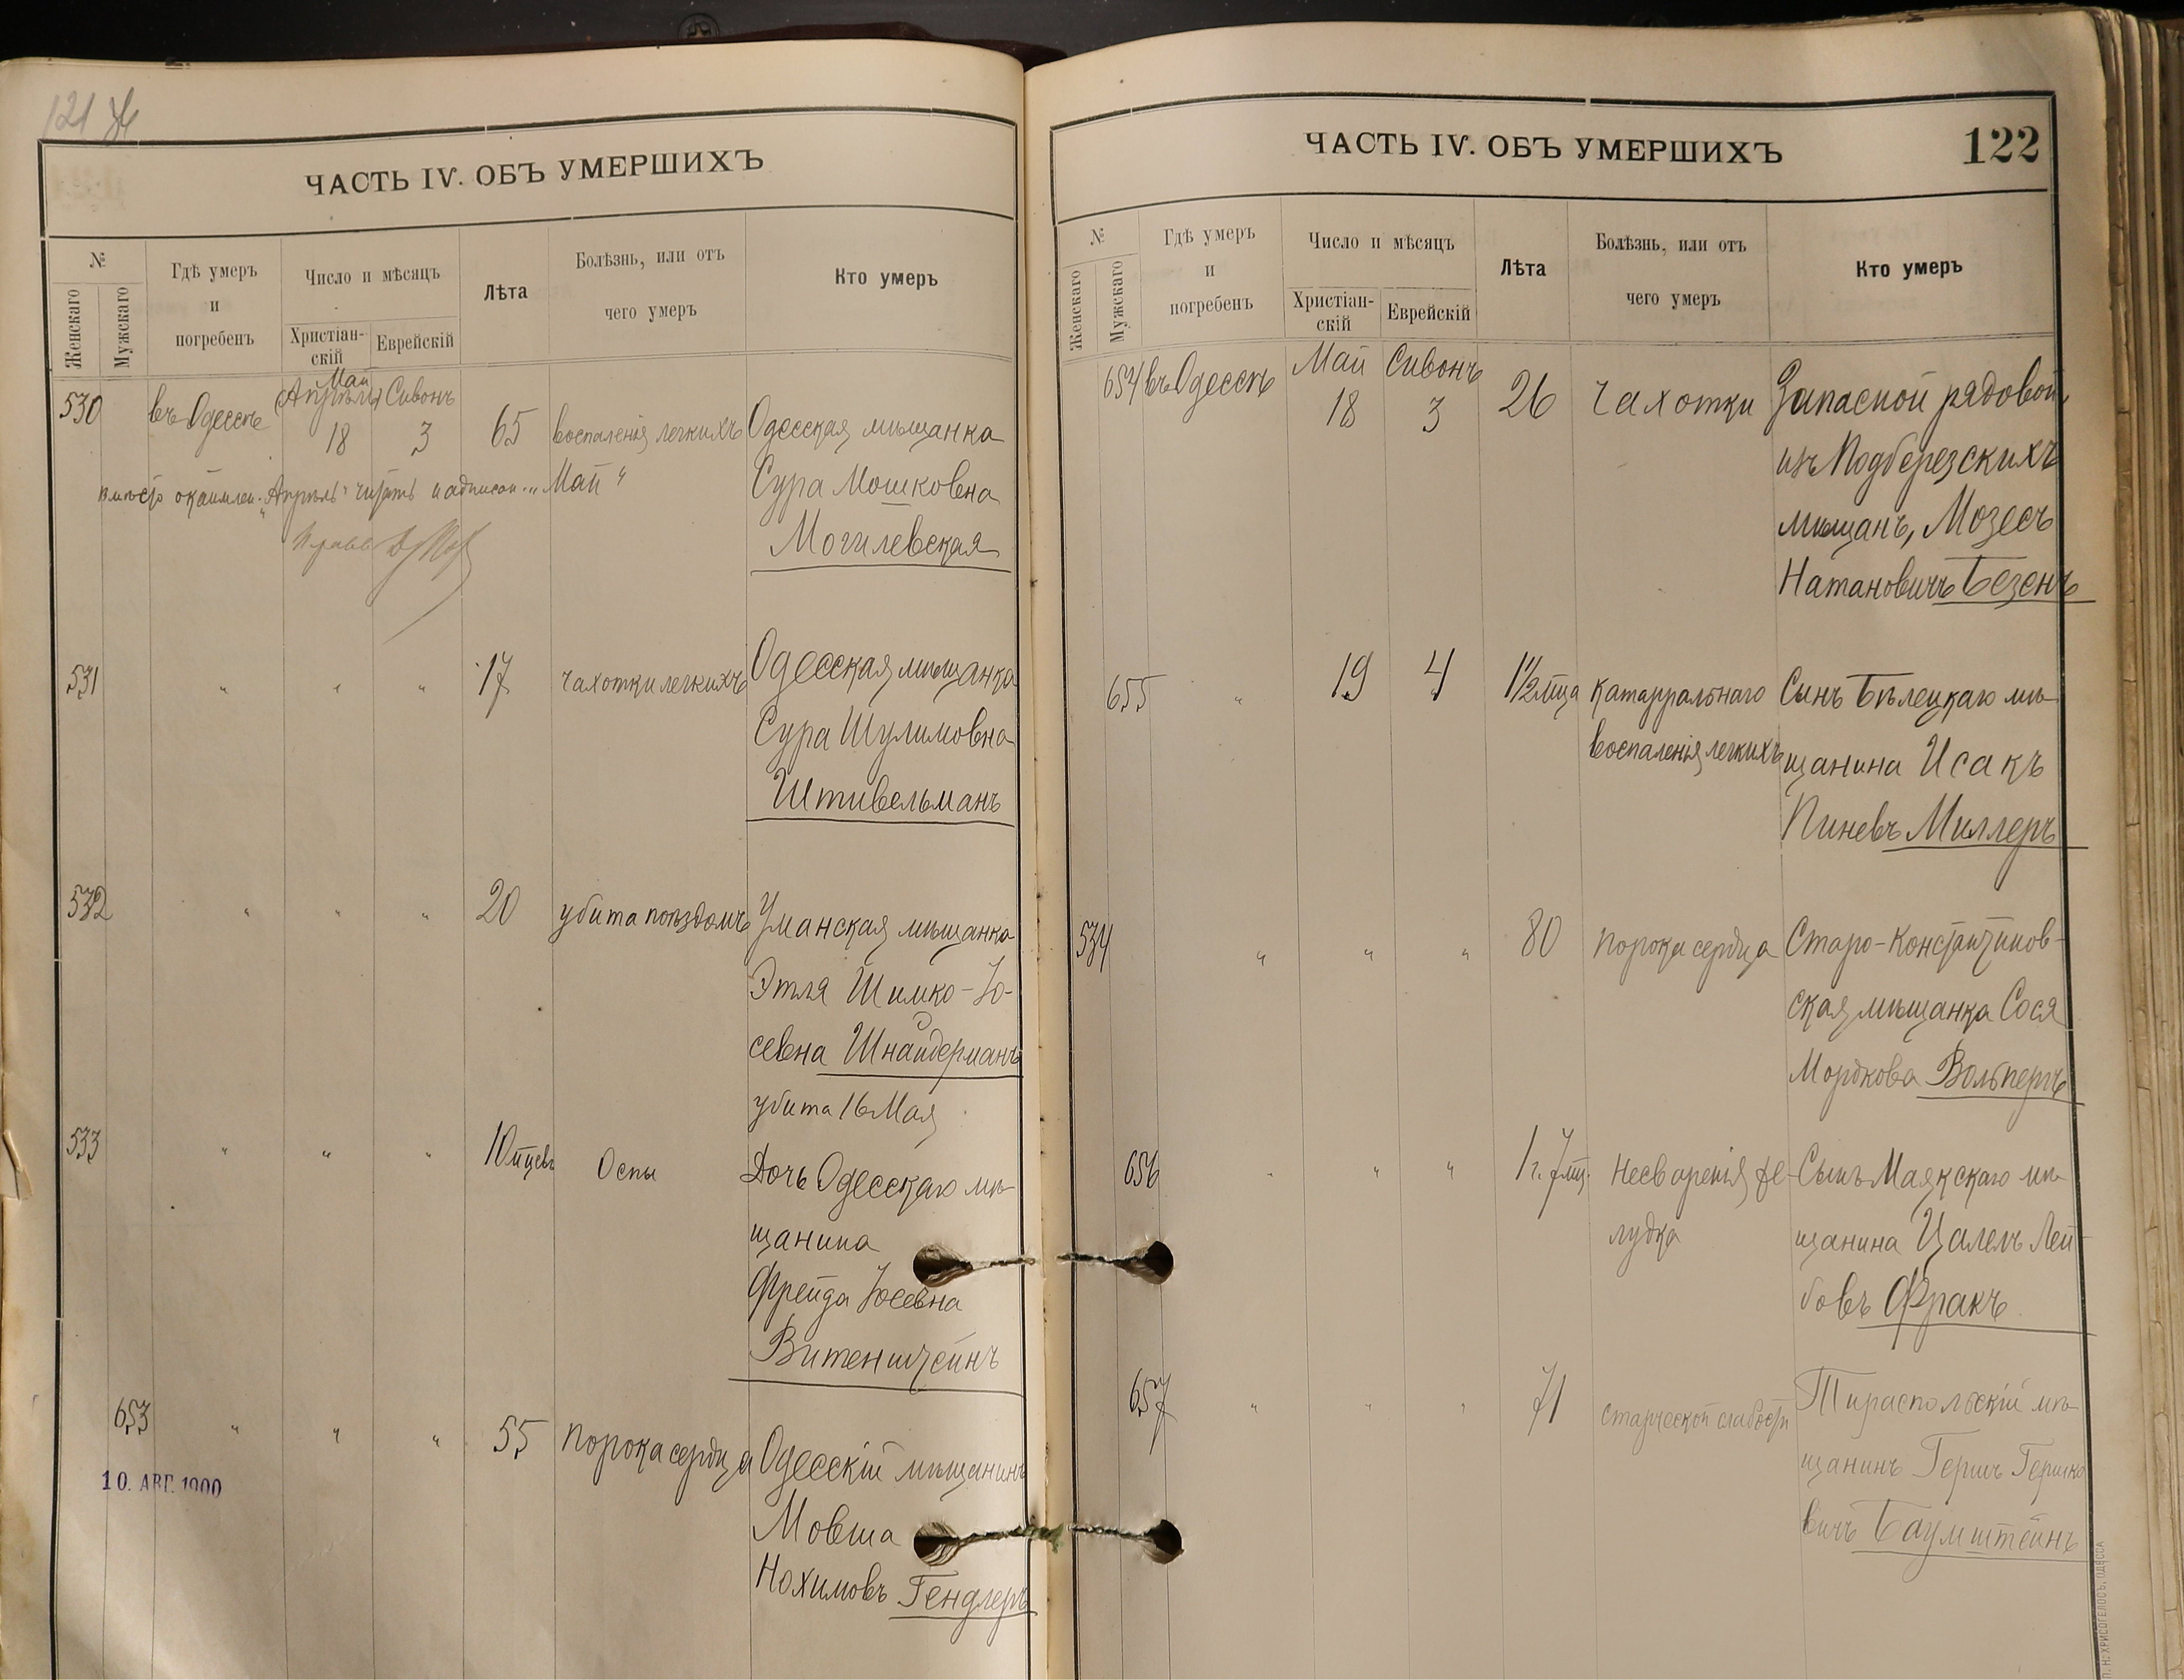 121 Ж
ЧАСТЬ IV. ОБЪ УМЕРШИХЪ
№
Женскаго
Мужскаго
Гдѣ умеръ
и
погребенъ
Число и мѣсяцъ
Христіан-
скій
Еврейскій
Лѣта
Болѣзнь, или отъ
чего умеръ
Кто умеръ
530 въ Одессѣ (Апрѣль) Май 18 Сивонъ 3 65 воспаленія легкихъ Одесская мѣщанка
Сура Мошковна
Могилевская
вмѣсто окаймлен. „Апрѣль“ читать надписан. „Май“
531 " " " 17 чахотки легкихъ Одесская мѣщанка
Сура Шулимовна
Штивельманъ
532 " " " 20 убита поѣздомъ Уманская мѣщанка
Этля Шимко-Іо-
севна Шнайдерманъ
убита 16 Мая
533 " " " 10 мцевъ Оспы Дочь Одесскаго мѣ-
щанина
Фрейда Іосевна
Витенштейнъ
653 " " " 55 порока сердца Одесскій мѣщанинъ
Мовша
Нохимовъ Гендлеръ
10. АВГ. 1900
ЧАСТЬ IV. ОБЪ УМЕРШИХЪ
122
№
Женскаго
Мужскаго
Гдѣ умеръ
и
погребенъ
Число и мѣсяцъ
Христіан-
скій
Еврейскій
Лѣта
Болѣзнь, или отъ
чего умеръ
Кто умеръ
654 въ Одессѣ Май 18 Сивонъ 3 26 чахотки Запасной рядовой,
изъ Подберезскихъ
мѣщанъ, Мозесъ
Натановичъ Безенъ
655 " 19 4 1½ мца катарральнаго Сынъ Бѣлецкаго мѣ-
воспаленія легкихъ щанина Исакъ
Пиневъ Миллеръ
534 " " " 80 порока сердца Старо-Константинов-
ская мѣщанка Сося
Мордкова Вольперъ
656 " " " 1 г. 7 мц. несваренія же- Сынъ Маякскаго мѣ-
лудка щанина Цалель Лей-
бовъ Фракъ
657 " " " 71 старческой слабости Тираспольскій мѣ-
щанинъ Гершъ Гершко
вичъ Баумштейнъ
П. Н. ХРИСОГЕЛОСЪ, ОДЕССА